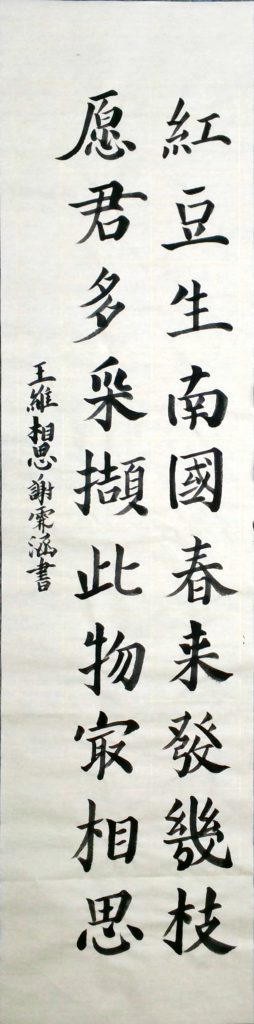 紅豆生南國春来發幾枝
愿君多采擷此物㝡相思
王維相思謝霈涵書